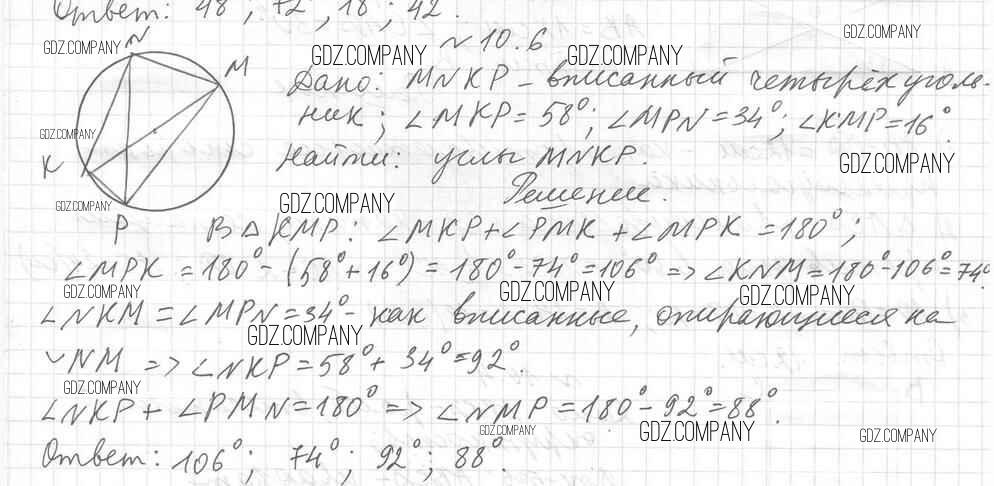 Ответ: 48°, 72°, 18°, 42°.
GDZ.COMPANY
N
GDZ.COMPANY
GDZ.COMPANY
№ 10.6
GDZ.COMPANY
M
Дано: MNKP – вписанный четырёхуголь-
ник; ∠MKP = 58°; ∠MPN = 34°; ∠KMP = 16°.
GDZ.COMPANY
K
Найти: углы MNKP.
GDZ.COMPANY
Решение.
GDZ.COMPANY
GDZ.COMPANY
P
В △ KMP: ∠MKP + ∠PMK + ∠MPK = 180°;
∠MPK = 180° - (58° + 16°) = 180° - 74° = 106° => ∠KNM = 180° - 106° = 74°
GDZ.COMPANY
GDZ.COMPANY
GDZ.COMPANY
∠NKM = ∠MPN = 34° - как вписанные, опирающиеся на
GDZ.COMPANY
◡NM => ∠NKP = 58° + 34° = 92°.
GDZ.COMPANY
∠NKP + ∠PMN = 180° => ∠NMP = 180° - 92° = 88°.
GDZ.COMPANY
GDZ.COMPANY
GDZ.COMPANY
Ответ: 106°; 74°; 92°; 88°.